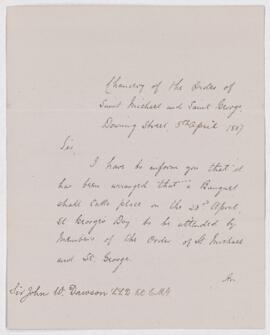 Chancery of the Order of
Saint Michael and Saint George,
Downing Street, 5th April 1887
Sir,
I have to inform you that it
has been arranged that a Banquet
shall take place on the 23rd April,
St George's Day to be attended by
Members of the Order of St Michael
and St. George.
An
Sir John W. Dawson LLD